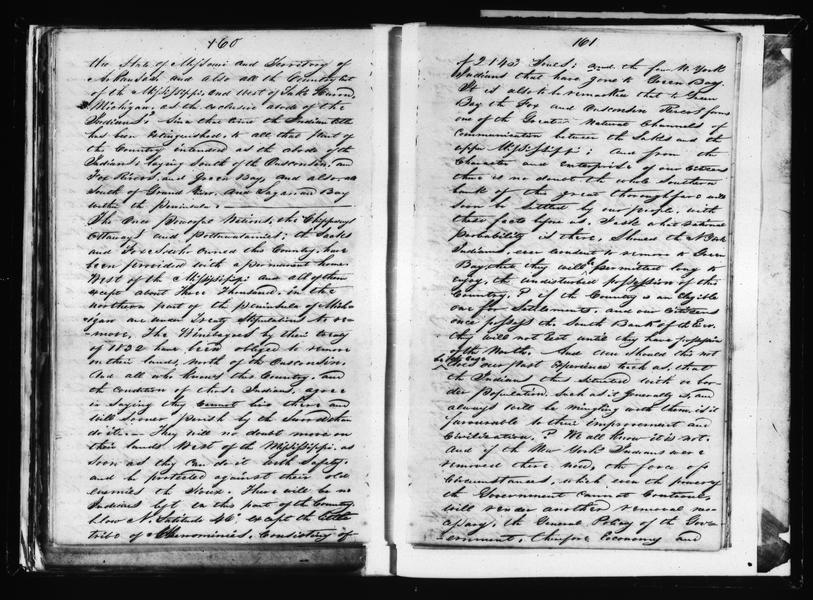 160
the State of Missouri and Territory of
Arkansas and also all the Country
of the Mississippi, and West of Lake
Michigan, as the exclusive abode of the
Indians. Since that time the Indian title
has been extinguished, to all that part of
the Country intended as the abode of the
Indians, laying South of the Ouisconsin, and
Fox Rivers, and Green Bay, and also, all
South of Grand River, and Saganau Bay
within the peninsula.
The Once Powerful Nations, the Chippeways
Ottaways and Pottawatamies; the Sacks
and Foxes, who owned this Country, have
been provided with a permanent home
West of the Mississippi and all of them
except about Three Thousand, in the
northern part of the peninsula of Michi-
gan are under Treaty Stipulations to re-
move, The Winebagoes by their treaty
of 1832 have been obliged to remove
on their lands, north of the Ouisconsin,
And all who knows this Country, and
the condition of these Indians, agree
in saying they Cannot live there and
will sooner Perish by the Sword than
do it. They will no doubt move on
their lands West of the Mississippi as
soon as they can do it with Safety,
and be protected against their old
enemies the Sioux. There will be no
Indians left in this part of the Country
below N. Latitude 46° except the little
tribe of Menominies, Consisting of
161
of 2142 Souls; and the few N. York
Indians that have gone to Green Bay.
It is also to be remarked that Green
Bay the Fox and Ouisconsin Rivers forms
one of the Greatest Natural Channels of
Communication between the Lakes and the
upper Mississippi; And from the
Character and enterprise of our Citizens
there is no doubt the whole Southern
bank of this great thoroughfare will
soon be settled by our people, with
these facts before us, I ask what rational
probability is there, Should the N. York
Indians, ever consent to remove to Green
Bay, that they will be permitted long to
enjoy, the undisturbed possession of this
Country,? if the Country is an eligible
one for Settlements, and our Citizens
once possess the South Bank of the River
they will not rest until they have possession
of the North. And even should this not
be the case
does our past experience teach us, that
the Indians thus situated with a bor-
der population, Such as it Generally is, and
always will be mingling with them, is it
favourable to their improvement and
Civilization,? We all know it is not.
And if the New York Indians were
removed there now, the force of
Circumstances, which even the power of
the Government cannot Controul,
will render another removal nec-
essary, the General Policy of the Gov-
ernment, therefore Economy and